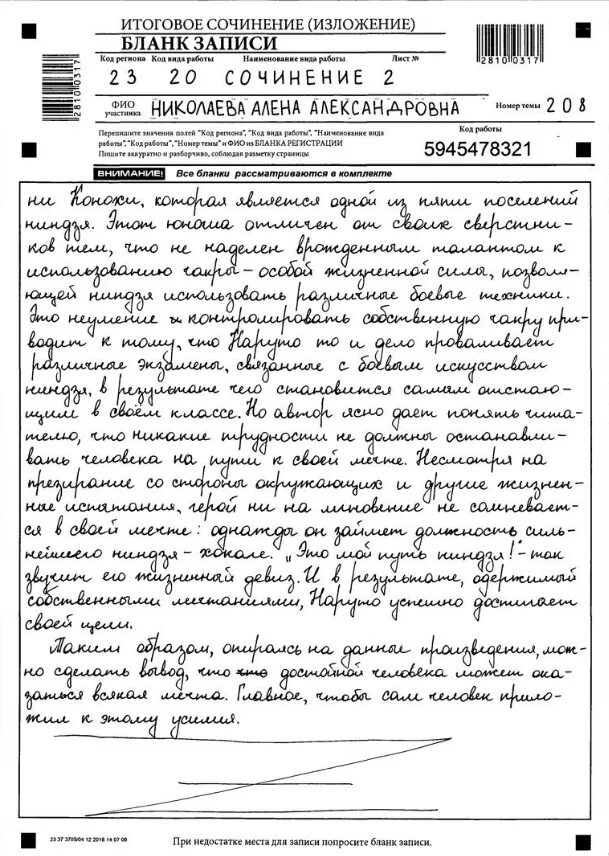 ИТОГОВОЕ СОЧИНЕНИЕ (ИЗЛОЖЕНИЕ)
БЛАНК ЗАПИСИ
Код региона Код вида работы Наименование вида работы Лист №
23 20 СОЧИНЕНИЕ 2
2810 0317
2810 0317
ФИО участника НИКОЛАЕВА АЛЕНА АЛЕКСАНДРОВНА Номер темы 208
Перепишите значения полей "Код региона", "Код вида работы", "Наименование вида
работы", "Код работы", "Номер темы" и ФИО из БЛАНКА РЕГИСТРАЦИИ
Пишите аккуратно и разборчиво, соблюдая разметку страницы
Код работы
5945478321
ВНИМАНИЕ! Все бланки рассматриваются в комплекте
ни Конохи, которая является одной из пяти поселений
ниндзя. Этот юноша отличен от своих сверстни-
ков тем, что не наделен врожденным талантом к
использованию чакры – особой жизненной силы, позволя-
ющей ниндзя использовать различные боевые техники.
Это неумение контролировать собственную чакру при-
водит к тому, что Наруто то и дело проваливает
различные экзамены, связанные с боевым искусством
ниндзя, в результате чего становится самым отстаю-
щим в своём классе. Но автор ясно дает понять чита-
телю, что никакие трудности не должны останавли-
вать человека на пути к своей мечте. Несмотря на
презирание со стороны окружающих и другие жизнен-
ные испытания, герой ни на мгновение не сомневает-
ся в своей мечте: однажды он займет должность силь-
нейшего ниндзя – хокаге. „Это мой путь ниндзя!" – так
звучит его жизненный девиз. И в результате, одержимый
собственными мечтаниями, Наруто успешно достигает
своей цели.
Таким образом, опираясь на данные произведения, мож-
но сделать вывод, что достойной человека может ока-
заться всякая мечта. Главное, чтобы сам человек прило-
жил к этому усилия.
При недостатке места для записи попросите бланк записи.